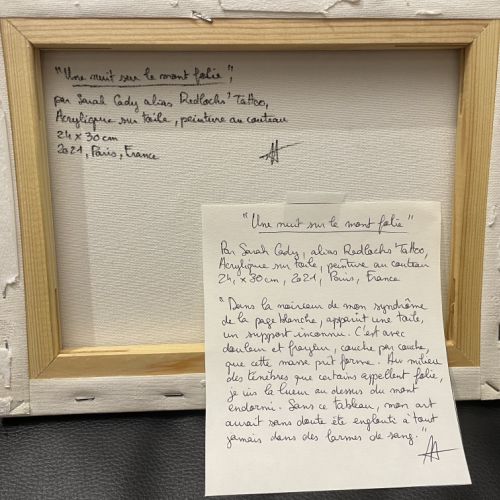 "Une nuit sur le mont folie",
par Sarah Cady alias Redlochs' Tattoo,
Acrylique sur toile, peinture au couteau
24 x 30 cm
2021, Paris, France
"Une nuit sur le mont folie"
Par Sarah Cady, alias Redlochs' Tattoo,
Acrylique sur toile, peinture au couteau
24, x 30 cm, 2021, Paris, France
"Dans la noirceur de mon syndrôme
de la page blanche, apparût une toile,
un support inconnu. C'est avec
douleur et frayeur, couche par couche,
que cette masse prit forme. Au milieu
des ténèbres que certains appellent folie,
je vis la lueur au dessus du mont
endormi. Sans ce tableau, mon art
aurait sans doute été englouti à tout
jamais dans des larmes de sang."